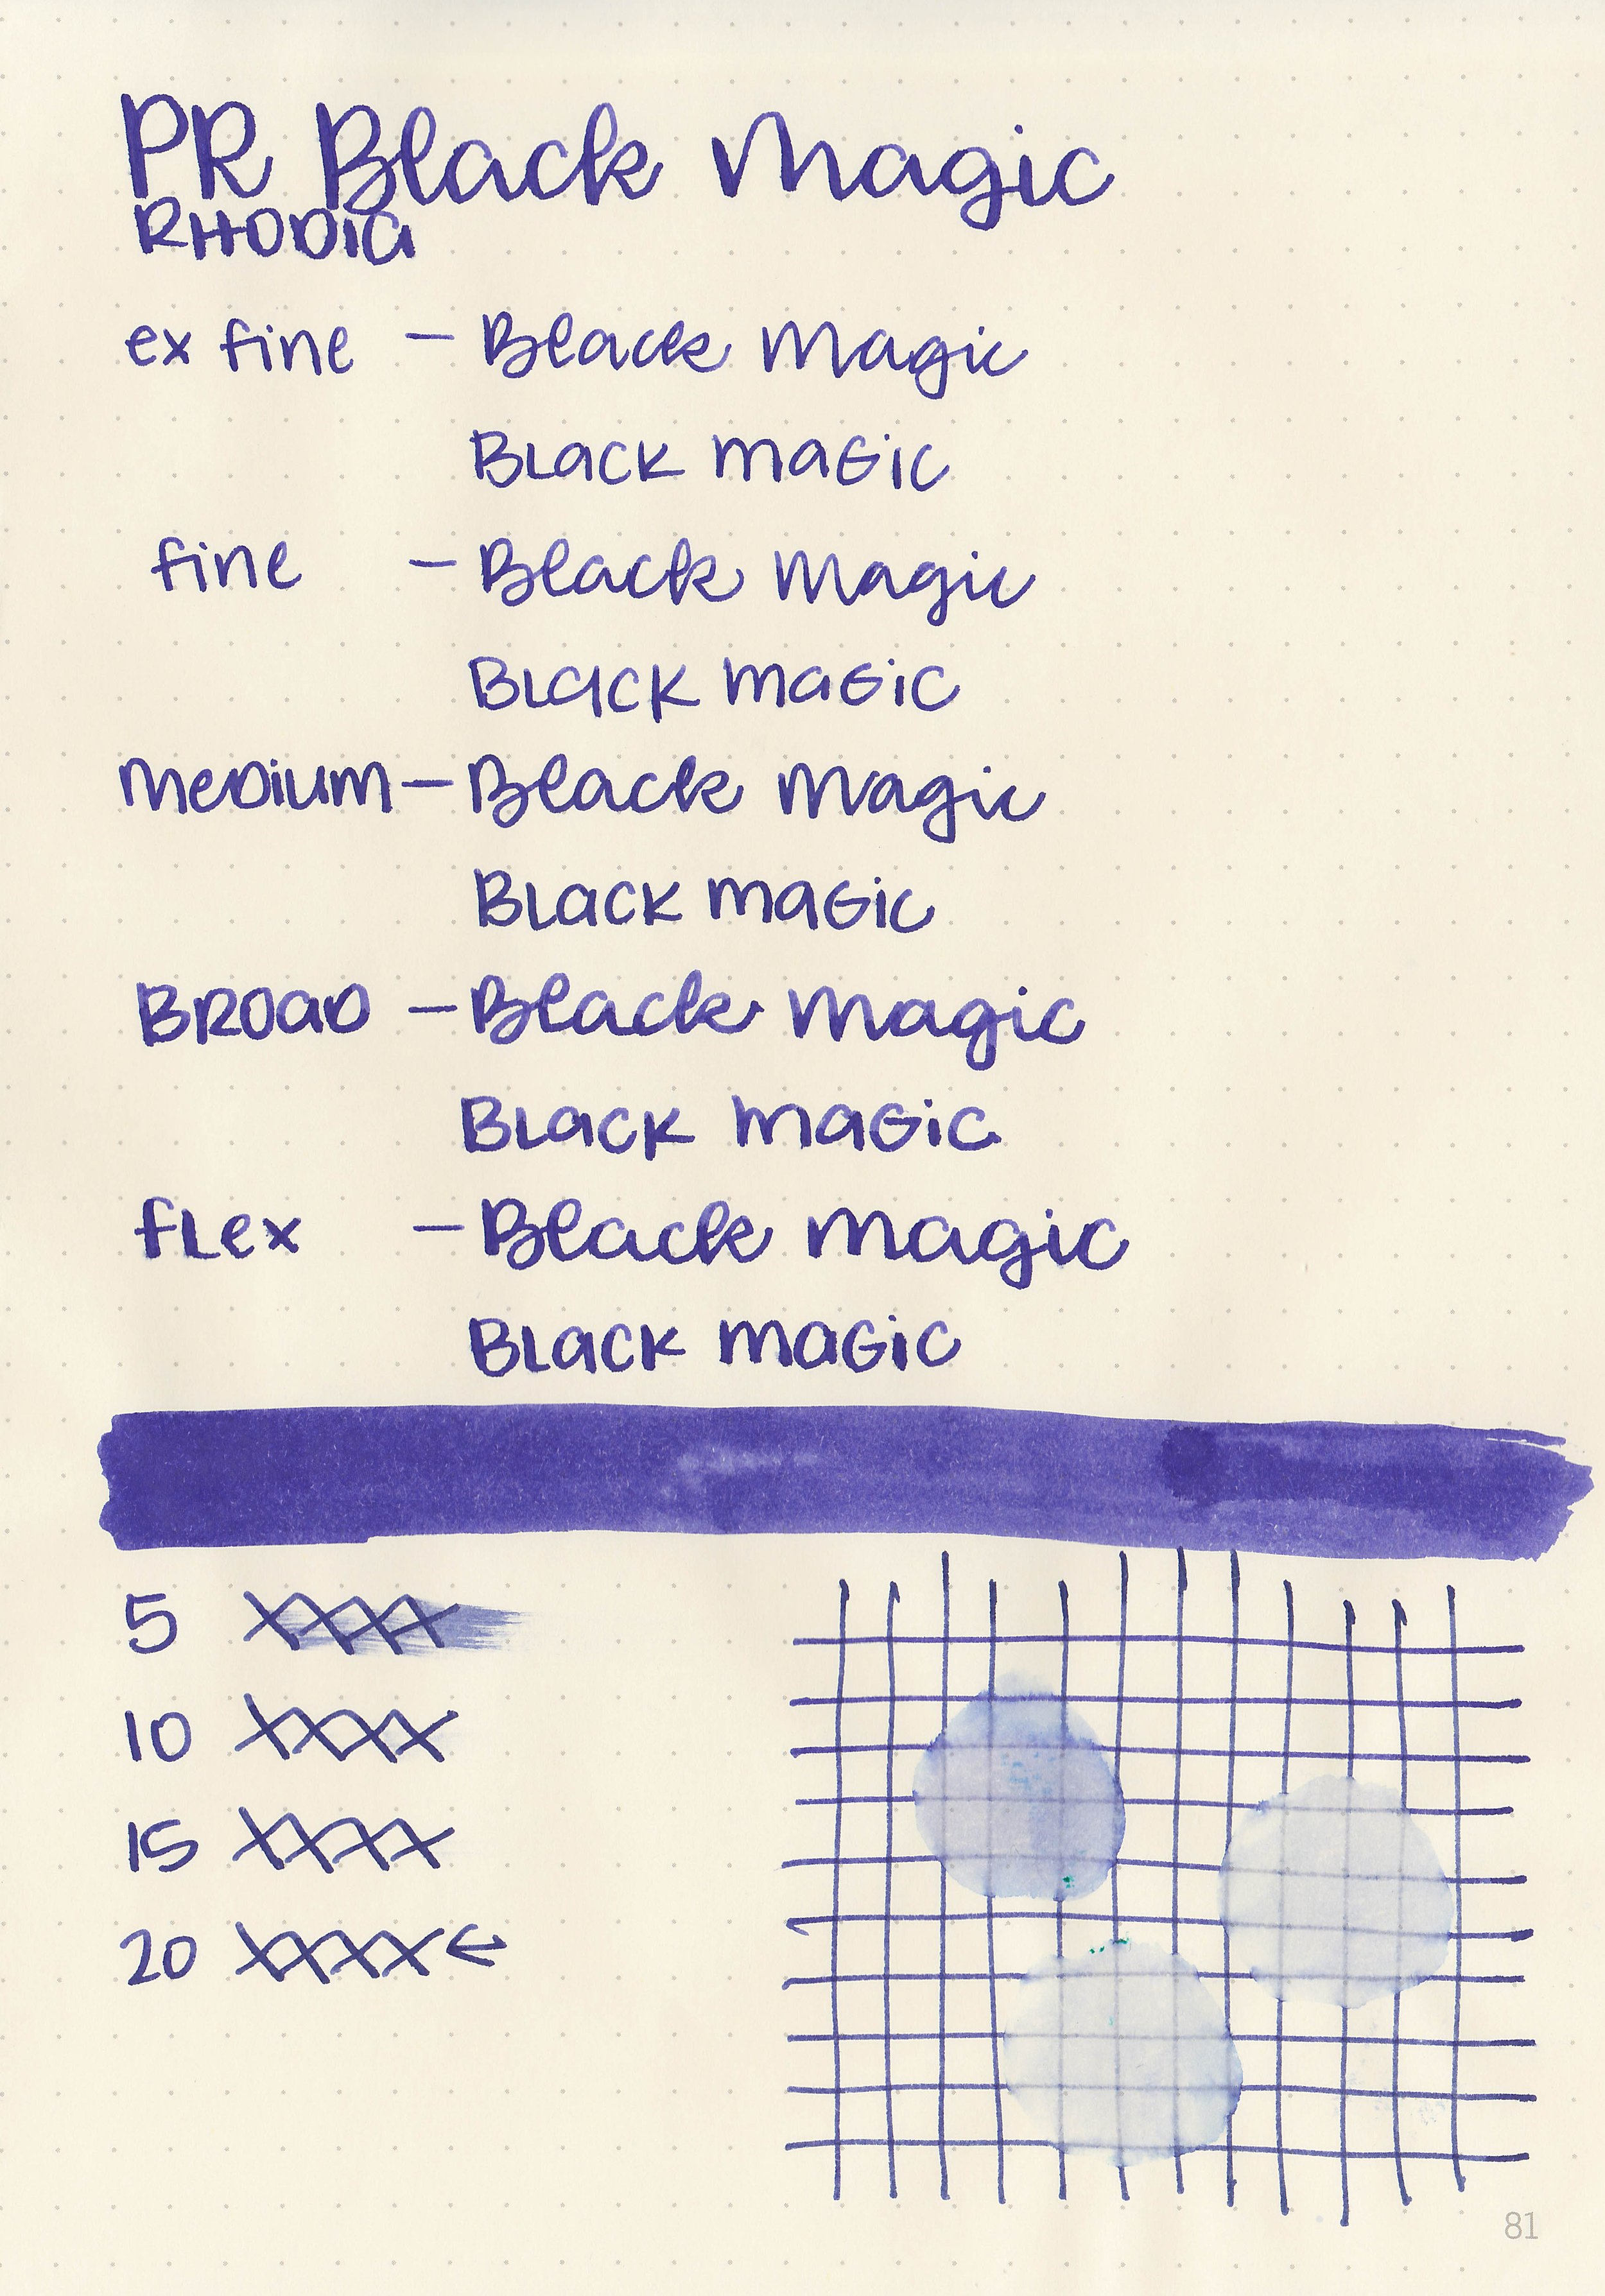 PR Black Magic
RHODIA
ex fine - Black Magic
BLACK MAGIC
fine - Black Magic
BLACK MAGIC
MEDIUM - Black Magic
BLACK MAGIC
BROAD - Black Magic
BLACK MAGIC
FLEX - Black Magic
BLACK MAGIC
5 XXXX
10 XXXX
15 XXXX
20 XXXX←
81